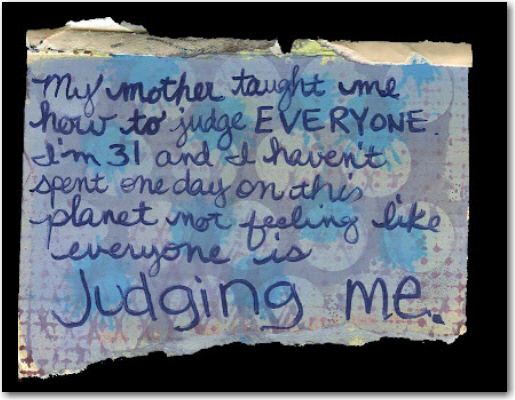 My mother taught me
how to judge EVERYONE.
I'm 31 and I haven't
spent one day on this
planet not feeling like
everyone is
Judging me.